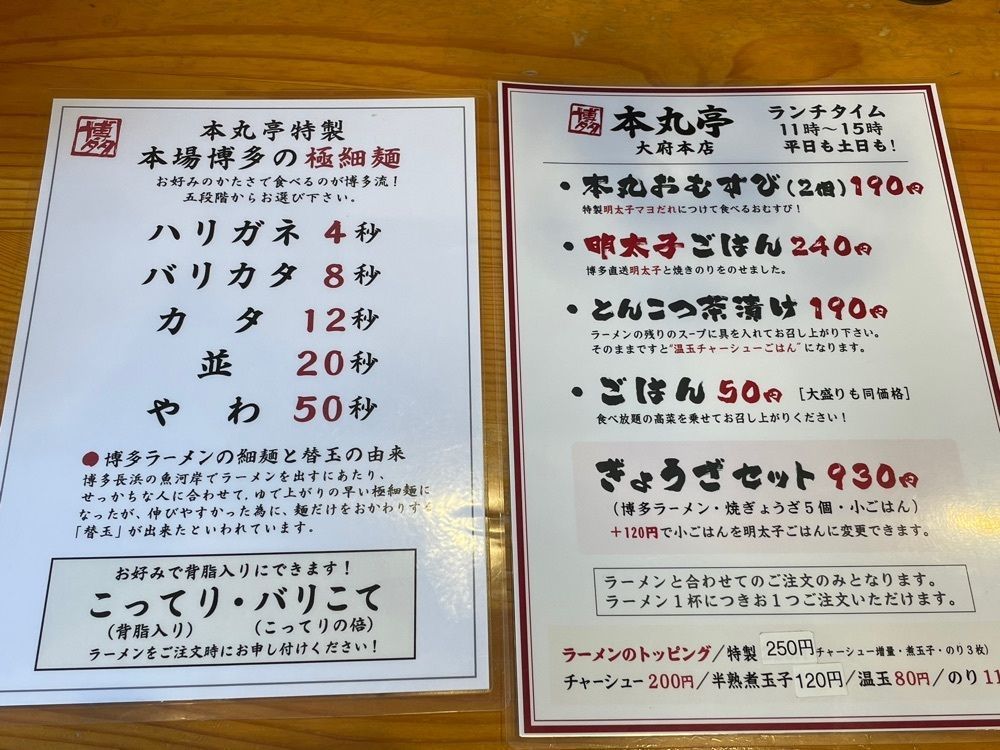 博多
本丸亭特製
本場博多の極細麺
お好みのかたさで食べるのが博多流！
五段階からお選び下さい。
ハリガネ 4秒
バリカタ 8秒
カタ 12秒
並 20秒
やわ 50秒
●博多ラーメンの細麺と替玉の由来
博多長浜の魚河岸でラーメンを出すにあたり、
せっかちな人に合わせて、ゆで上がりの早い極細麺に
なったが、伸びやすかった為に、麺だけをおかわりする
「替玉」が出来たといわれています。
お好みで背脂入りにできます！
こってり・バリこて
(背脂入り) (こってりの倍)
ラーメンをご注文時にお申し付けください！
博多 本丸亭
大府本店
ランチタイム
11時〜15時
平日も土日も！
・本丸おむすび(2個)190円
特製明太子マヨだれにつけて食べるおむすび！
・明太子ごはん240円
博多直送明太子と焼きのりをのせました。
・とんこつ茶漬け 190円
ラーメンの残りのスープに具を入れてお召し上がり下さい。
そのままですと"温玉チャーシューごはん"になります。
・ごはん 50円 [大盛りも同価格]
食べ放題の高菜を乗せてお召し上がりください！
ぎょうざセット 930円
(博多ラーメン・焼ぎょうざ5個・小ごはん)
＋120円で小ごはんを明太子ごはんに変更できます。
ラーメンと合わせてのご注文のみとなります。
ラーメン1杯につきお1つご注文いただけます。
ラーメンのトッピング／特製 250円 (チャーシュー増量・煮玉子・のり3枚)
チャーシュー200円／半熟煮玉子120円／温玉80円／のり11